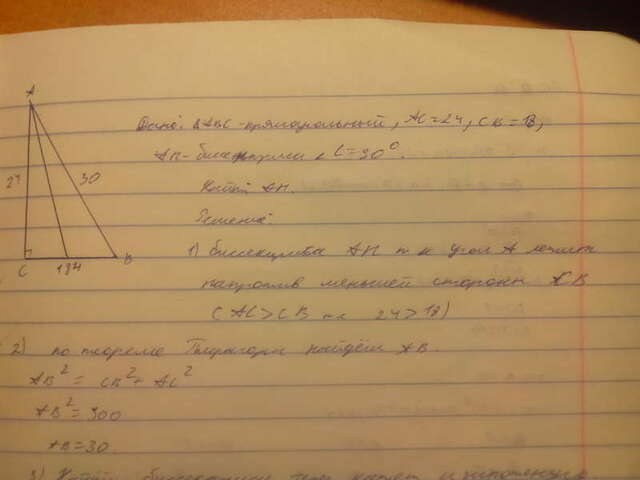 A
Дано: ΔABC - прямоугольный, AC=24, CB=18,
AH - биссектриса, ∠C=90°.
24
30
Найти AH.
Решение:
1) биссектриса AH т.к угол A лежит
C
18H
B
напротив меньшей стороны CB
(AC>CB т.к 24>18)
2) по теореме Пифагора найдём AB.
AB² = CB² + AC²
AB² = 900
AB=30.
3) Найти биссектрису